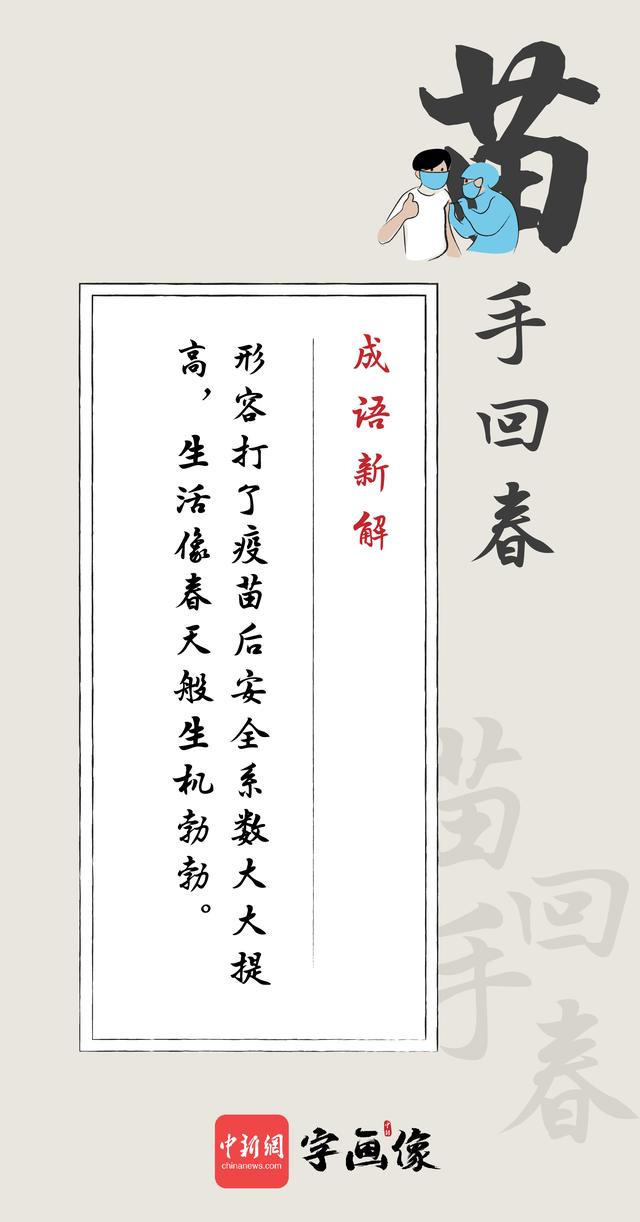 苗手回春
成语新解
形容打了疫苗后安全系数大大提
高，生活像春天般生机勃勃。
苗手回春
中新網
chinanews.com
字画像